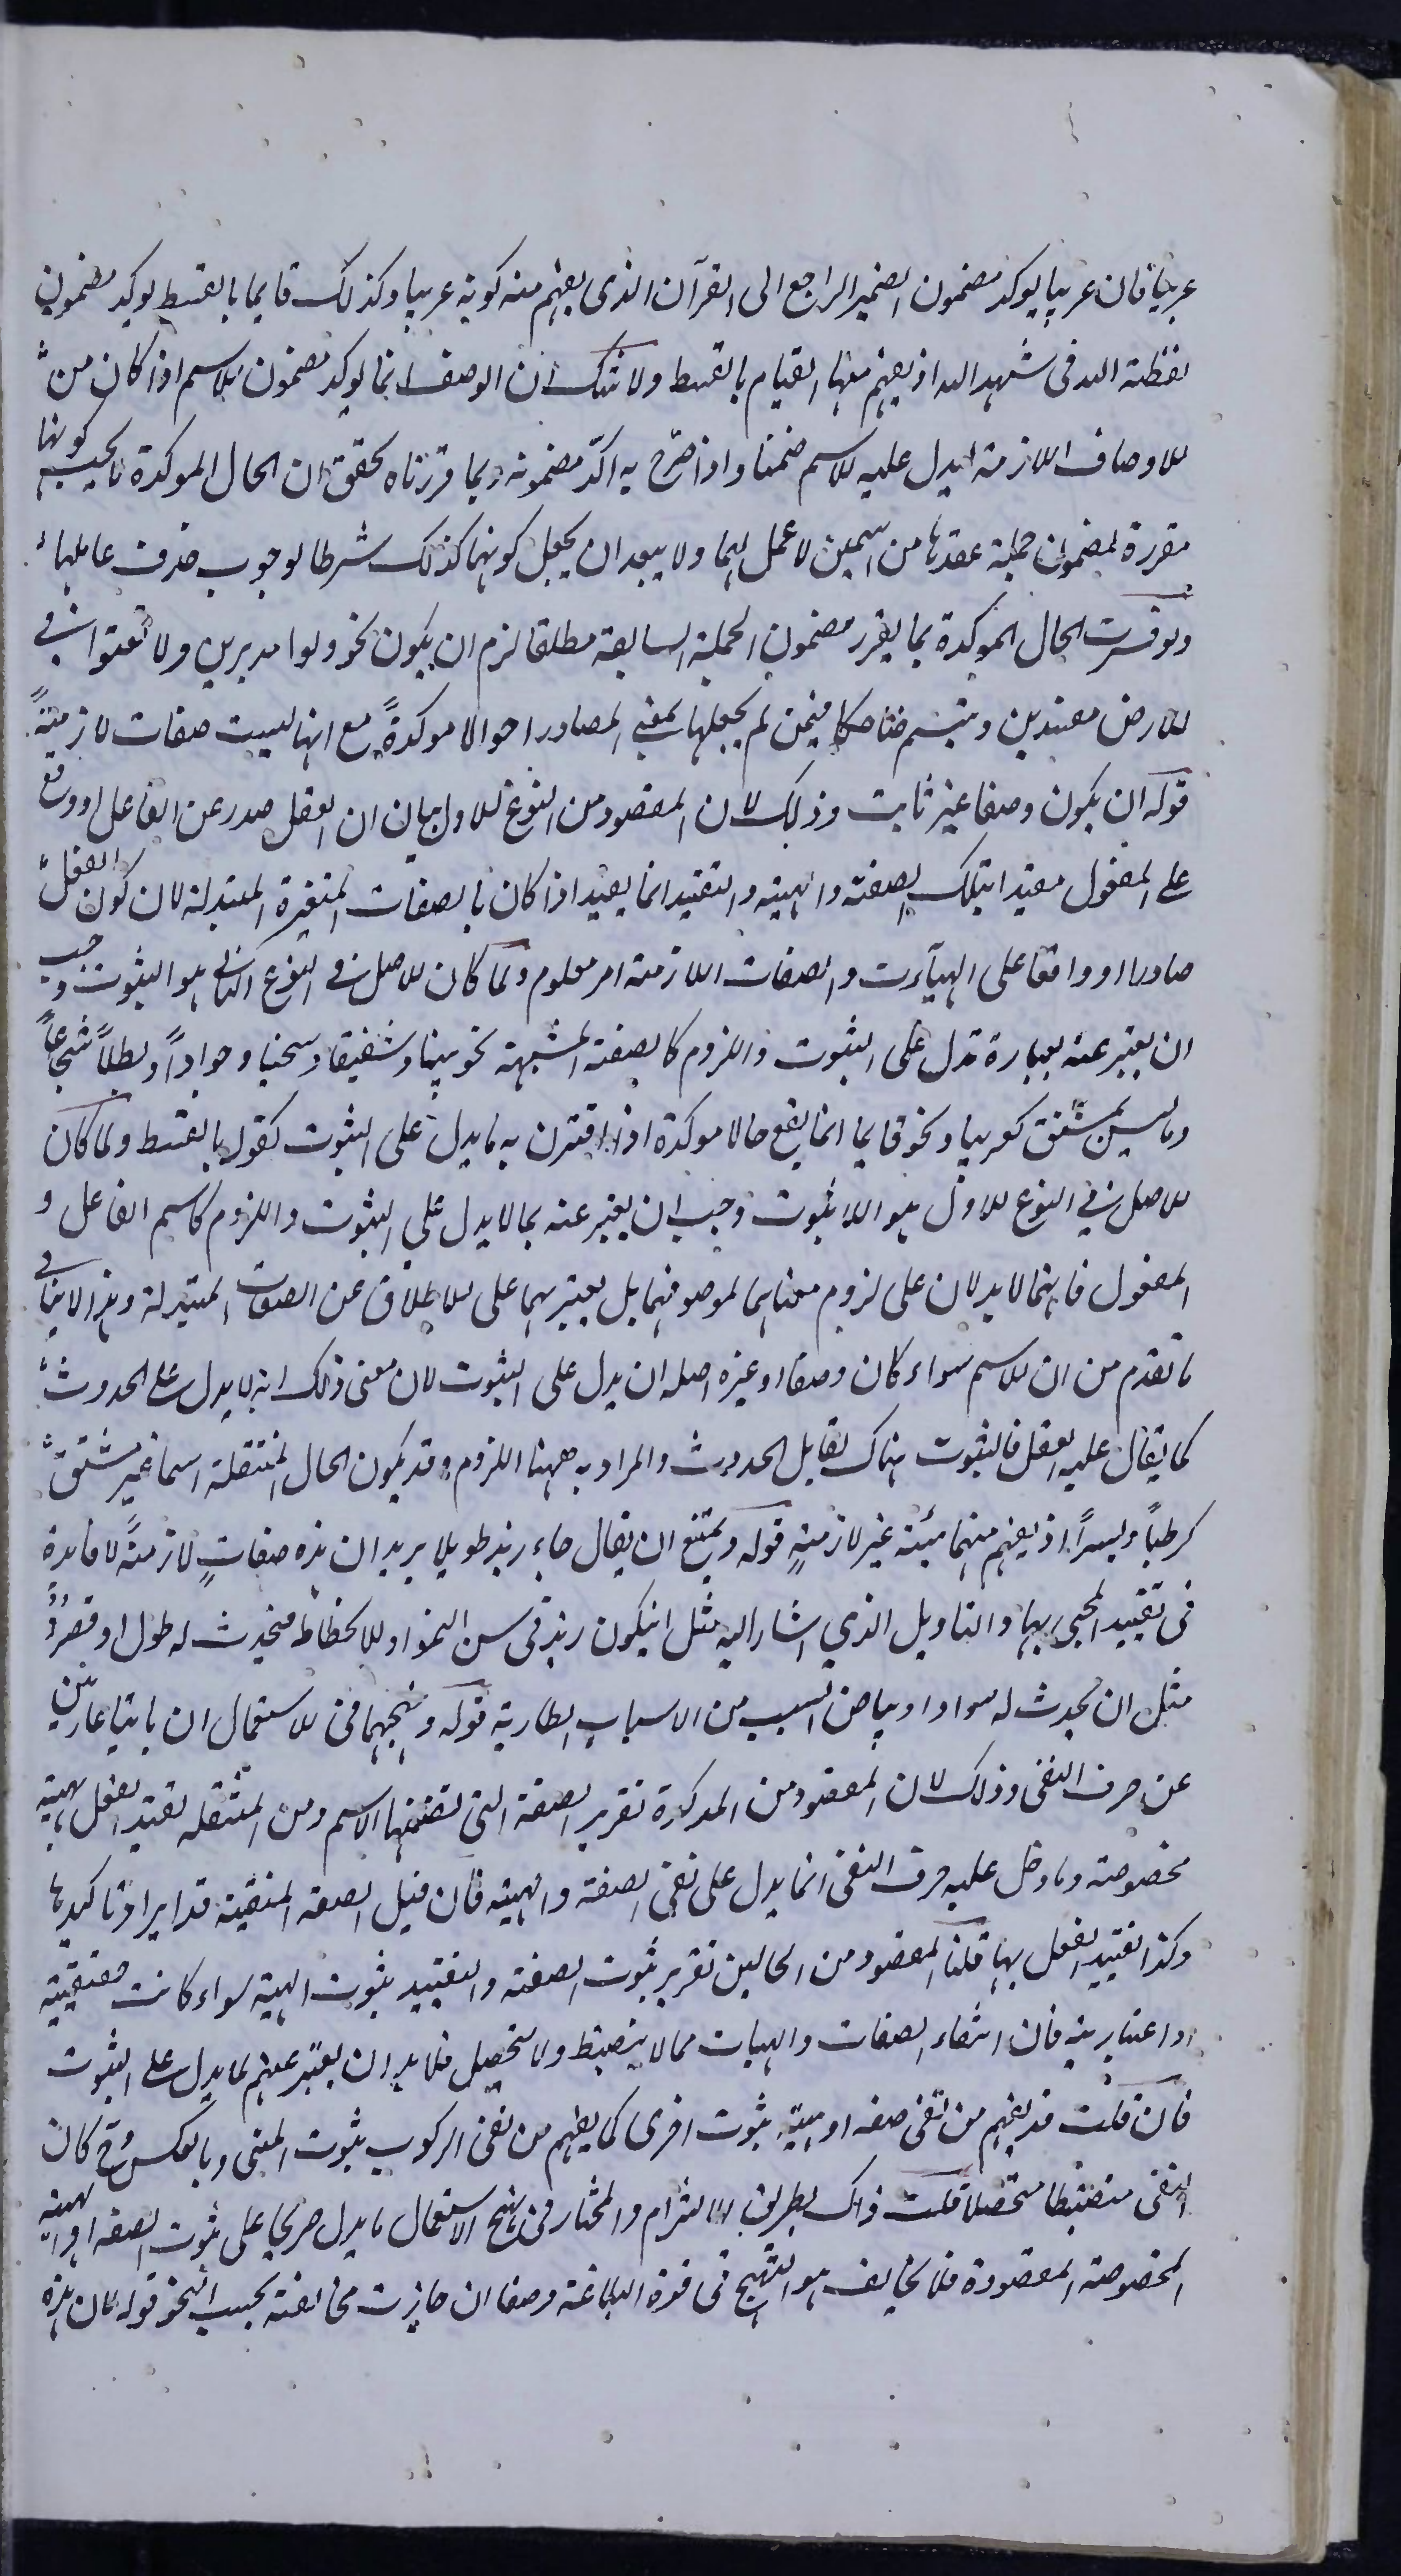 عربيا فان عربيا يوكد مضمون الضمير الراجع الى القرآن الذى يفهم منه كونه عربيا وكذلك قايما بالقسط يوكد مضمون
لفظة الله فى شهد الله اذ يفهم منها القيام بالقسط ولا شك ان الوصف انما يوكد مضمون الاسم اذا كان من
الاوصاف اللازمة ليدل عليه الاسم ضمنا واذا صرح به اكّد مضمونه وبما قررناه تحقق ان الحال الموكدة ما يجب كونها
مقررة لمضمون جملة عقدها من اسمين لا عمل لهما ولا يبعد ان يجعل كونها كذلك شرطا لوجوب حذف عاملها
ولو فسرت الحال الموكدة بما يقرر مضمون الجملة السابقة مطلقا لزم ان يكون نحو ولوا مدبرين ولا تعثوا فى
الارض مفسدين وتبسم ضاحكا فيمن لم يجعلها بمعنى المصادر احوالا موكدةً مع انها ليست صفات لازمةً
قوله ان يكون وصفا غير ثابت وذلك لان المقصود من النوع الاول بيان ان الفعل صدر عن الفاعل او وقع
على المفعول مقيدا بتلك الصفة والهيئة والتقييد انما يفيد اذا كان بالصفات المتغيرة المتبدلة لان كون الفعل
صادرا او واقعا على الهيآت والصفات اللازمة امر معلوم ولما كان الاصل فى النوع الثانى هو الثبوت وجب
ان يعبر عنه بعبارة تدل على الثبوت واللزوم كالصفة المشبهة نحو بينا وشفيقا وسخيا وجواداً وبطلاً شجاعاً
وما ليس بمشتق كعربيا ونحو قايما انما يقع حالا موكدة اذا اقترن به ما يدل على الثبوت كقوله بالقسط ولما كان
الاصل فى النوع الاول هو اللاثبوت وجب ان يعبر عنه بما لا يدل على الثبوت واللزوم كاسم الفاعل و
المفعول فانهما لا يدلان على لزوم معناهما لموصوفهما بل يعبر بهما على الاطلاق عن الصفات المتبدلة وهذا لا ينافى
ما تقدم من ان الاسم سواء كان وصفا او غيره اصله ان يدل على الثبوت لان معنى ذلك انه لا يدل على الحدوث
كما يقال عليه الفعل فالثبوت هناك يقابل الحدوث والمراد به ههنا اللزوم وقد يكون الحال المنتقلة اسما غير مشتق
كرطباً وبسراً اذ يفهم منهما هيئة غير لازمةٍ قوله ويمتنع ان يقال جاء زيد طويلا يريد ان هذه صفاتٍ لازمةً لا فايدة
فى تقييد المجىء بها والتاويل الذي اشار اليه مثل ان يكون زيد فى سن النمو او الانحطاط فيحدث له طول او قصر
مثل ان يحدث له سواد او بياض لسبب من الاسباب الطارية قوله ونهجهما فى الاستعمال ان ياتيا عاريتين
عن حرف النفى وذلك لان المقصود من الموكدة تقرير الصفة التى تضمنها الاسم ومن المنتقله تقييد الفعل بهيئة
مخصوصة وما دخل عليه حرف النفى انما يدل على نفى الصفة والهيئة فان قيل الصفة المنفية قد يراد تاكيدها
وكذا تقييد الفعل بها قلنا المقصود من الحالين تقرير ثبوت الصفة والتقييد بثبوت الهيئة سواء كانت حقيقية
او اعتبارية فان انتفاء الصفات والهيات مما لا ينضبط ولا يتحصل فلا بد ان يعبر عنهم بما يدل على الثبوت
فان قلت قد يفهم من نفى صفه او هيئة ثبوت اخرى كما يفهم من نفى الركوب ثبوت المشى وبالعكس وح كان
النفى منضبطا متحصلا قلت ذاك بطريق الالتزام والمختار فى نهج الاستعمال ما يدل صريحا على ثبوت الصفه او الهيئة
المخصوصة المقصودة فلا يخالف هو النهج فى قوة البلاغة وصفا ان جازت مخالفته بحسب النحو قوله لان هذه